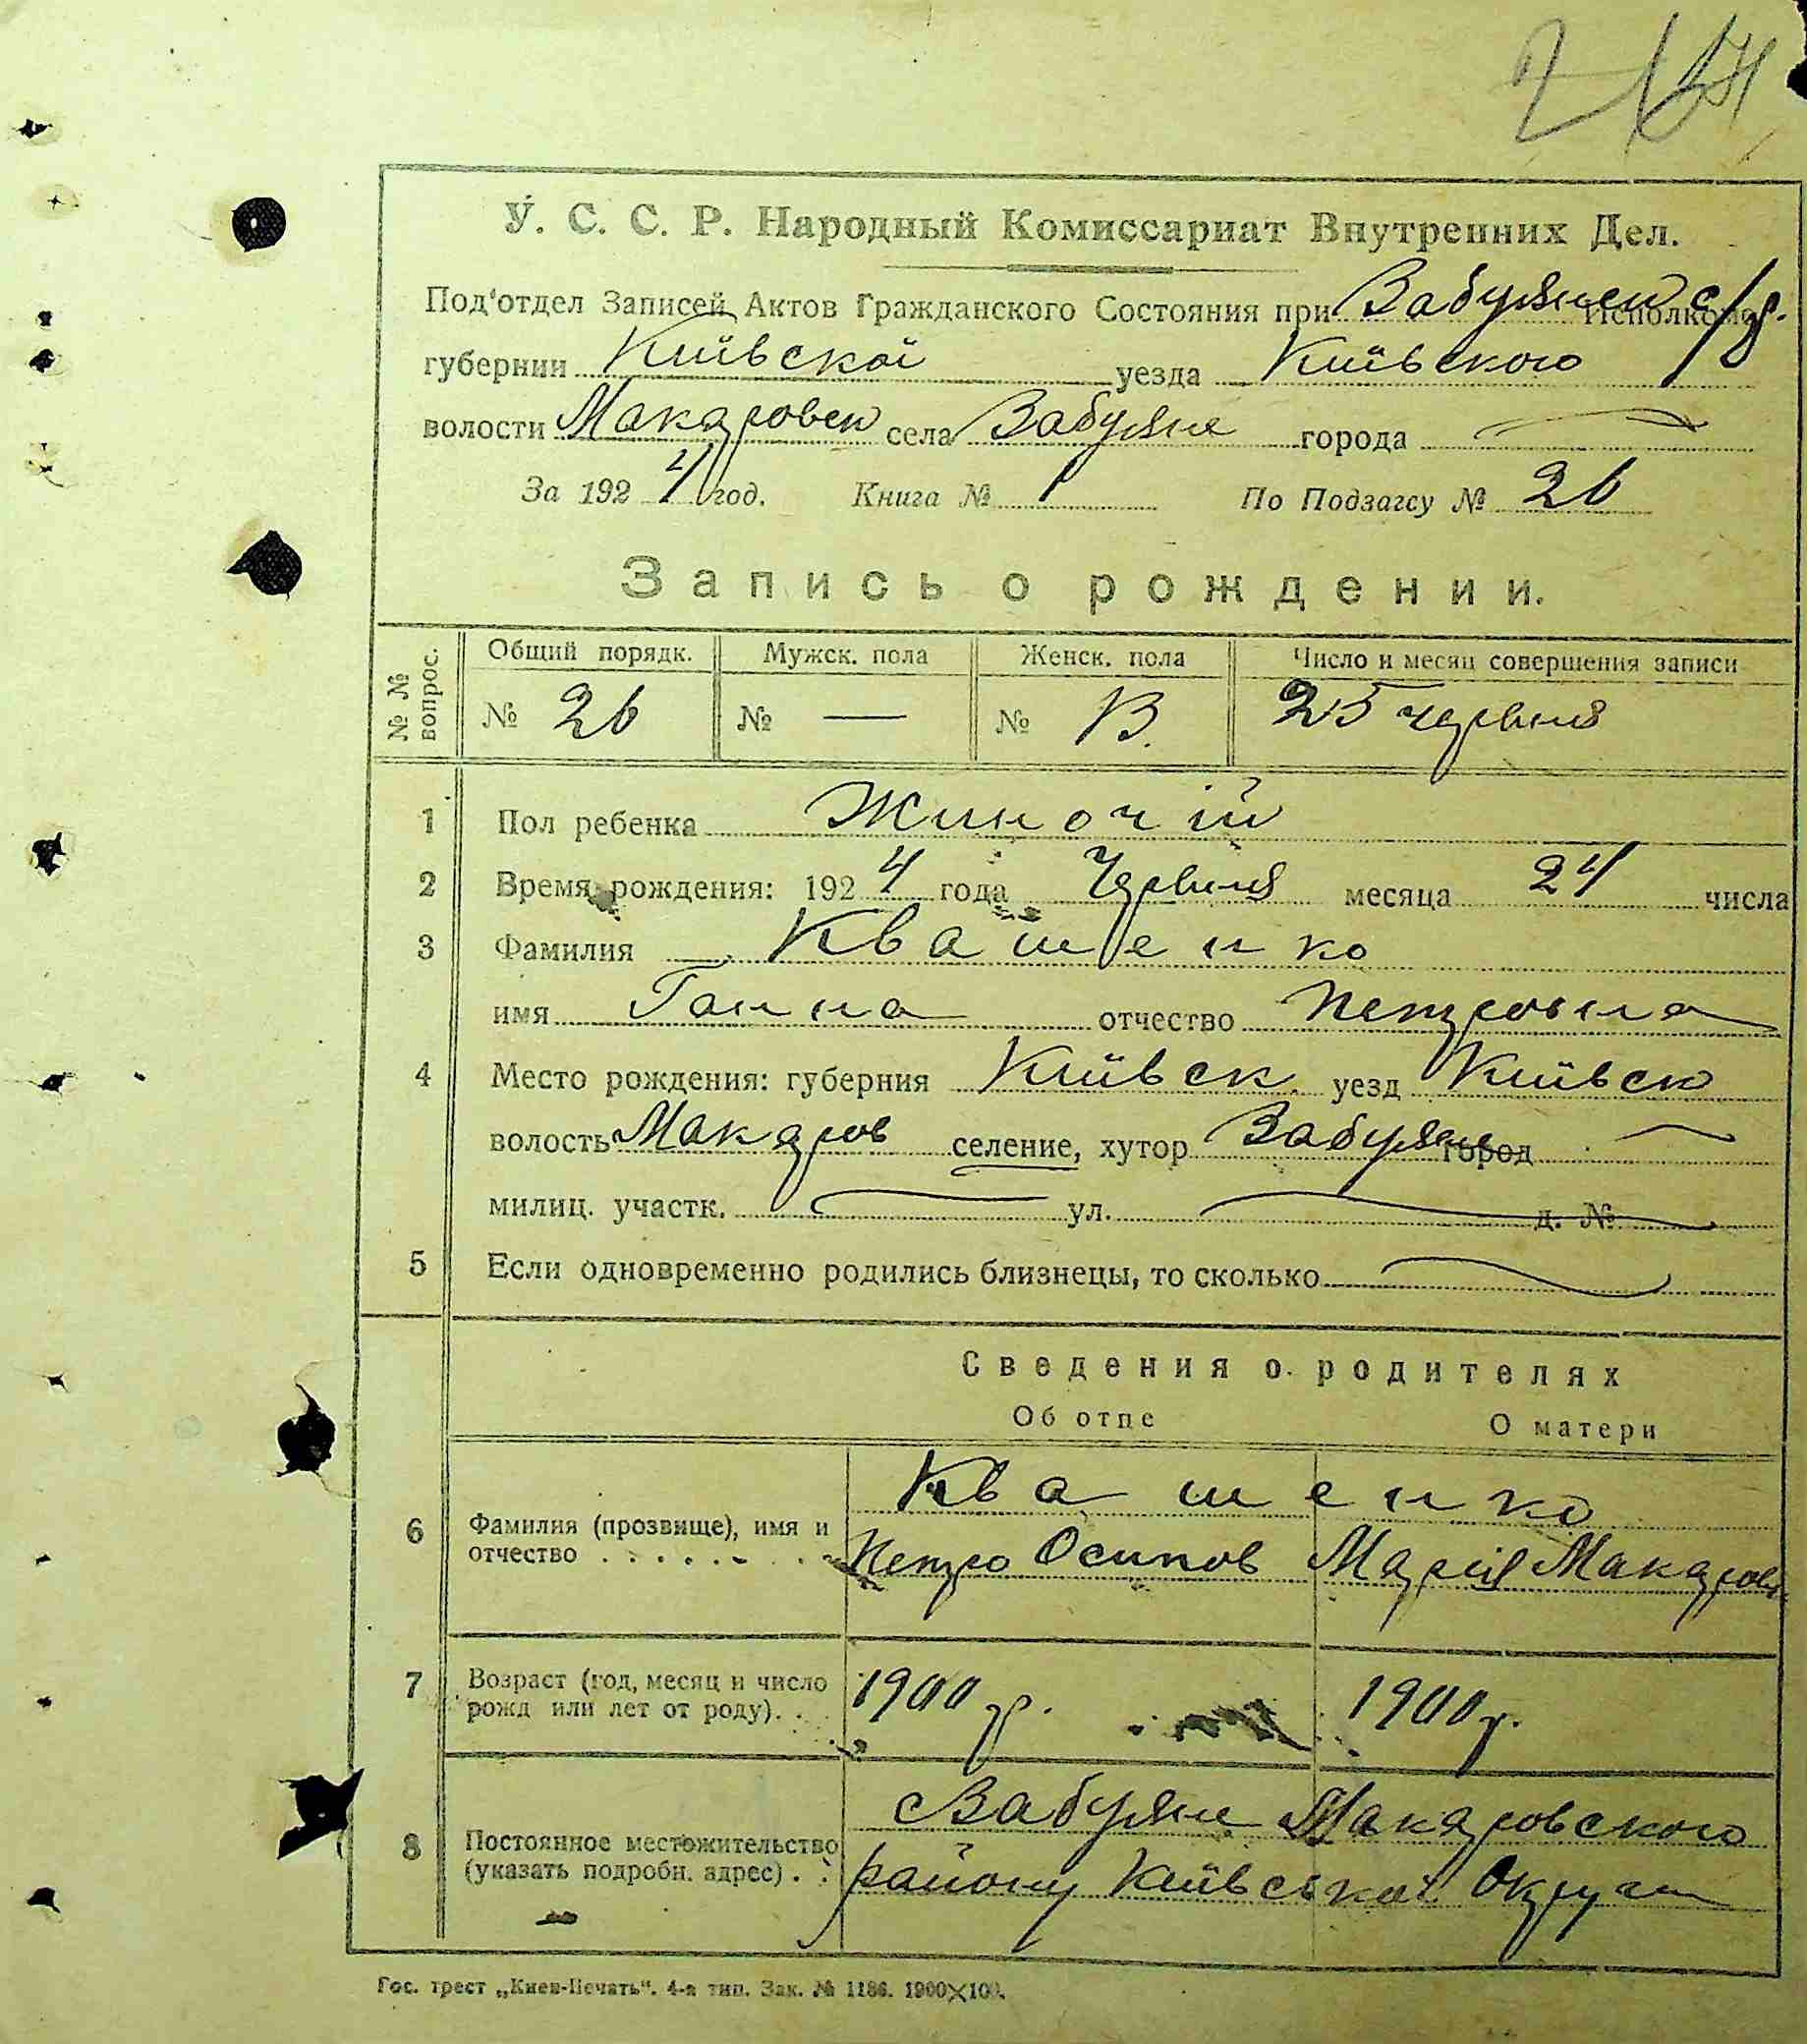 У. С. С. Р. Народный Комиссариат Внутренних Дел.
Под'отдел Записей Актов Гражданского Состояния при Забуянск с/р. Исполкоме
губернии Київской уезда Київского
волости Макаровск села Забуяне города
За 1924 год. Книга № 1 По Подзагсу № 26
Запись о рождении.
№ № вопрос. Общий порядк. Мужск. пола Женск. пола Число и месяц совершения записи
№ 26 № — № 13. 25 червня
1 Пол ребенка Жиночій
2 Время рождения: 1924 года Червня месяца 24 числа
3 Фамилия Квашенко
имя Ганна отчество Петровна
4 Место рождения: губерния Київск. уезд Київск
волость Макаров селение, хутор Забуяне город
милиц. участк. ул. д. №
5 Если одновременно родились близнецы, то сколько
Сведения о родителях
Об отце О матери
Квашенко
6 Фамилия (прозвище), имя и
отчество Петро Осипов Марія Макаров
7 Возраст (год, месяц и число
рожд или лет от роду). 1900 р. 1900 р.
Забуяне Макаровского
8 Постоянное местожительство
(указать подробн. адрес) району Київської Округи
Гос. трест „Киев-Печать". 4-я тип. Зак. № 1186. 1900×100.